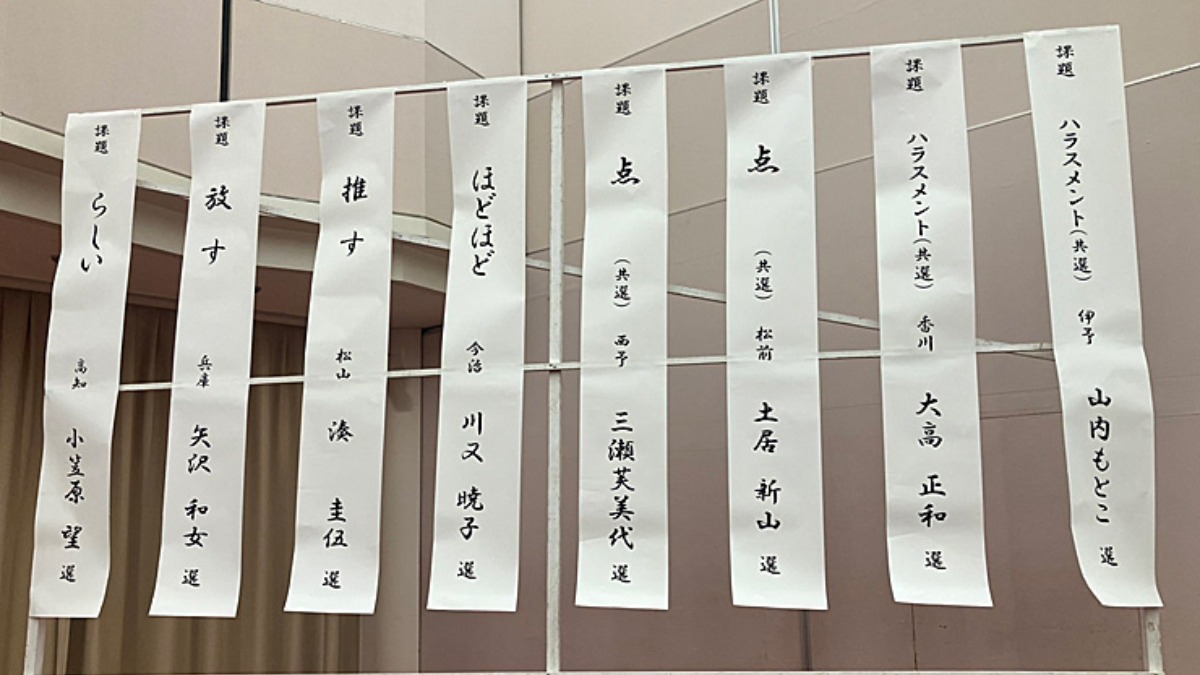 課題 ハラスメント(共選) 伊予 山内もとこ 選
課題 ハラスメント(共選) 香川 大高 正和 選
課題 点 (共選) 松前 土居 新山 選
課題 点 (共選) 西予 三瀬芙美代 選
課題 ほどほど 今治 川又 暁子 選
課題 推す 松山 湊 圭伍 選
課題 放す 兵庫 矢沢 和女 選
課題 らしい 高知 小笠原 望 選